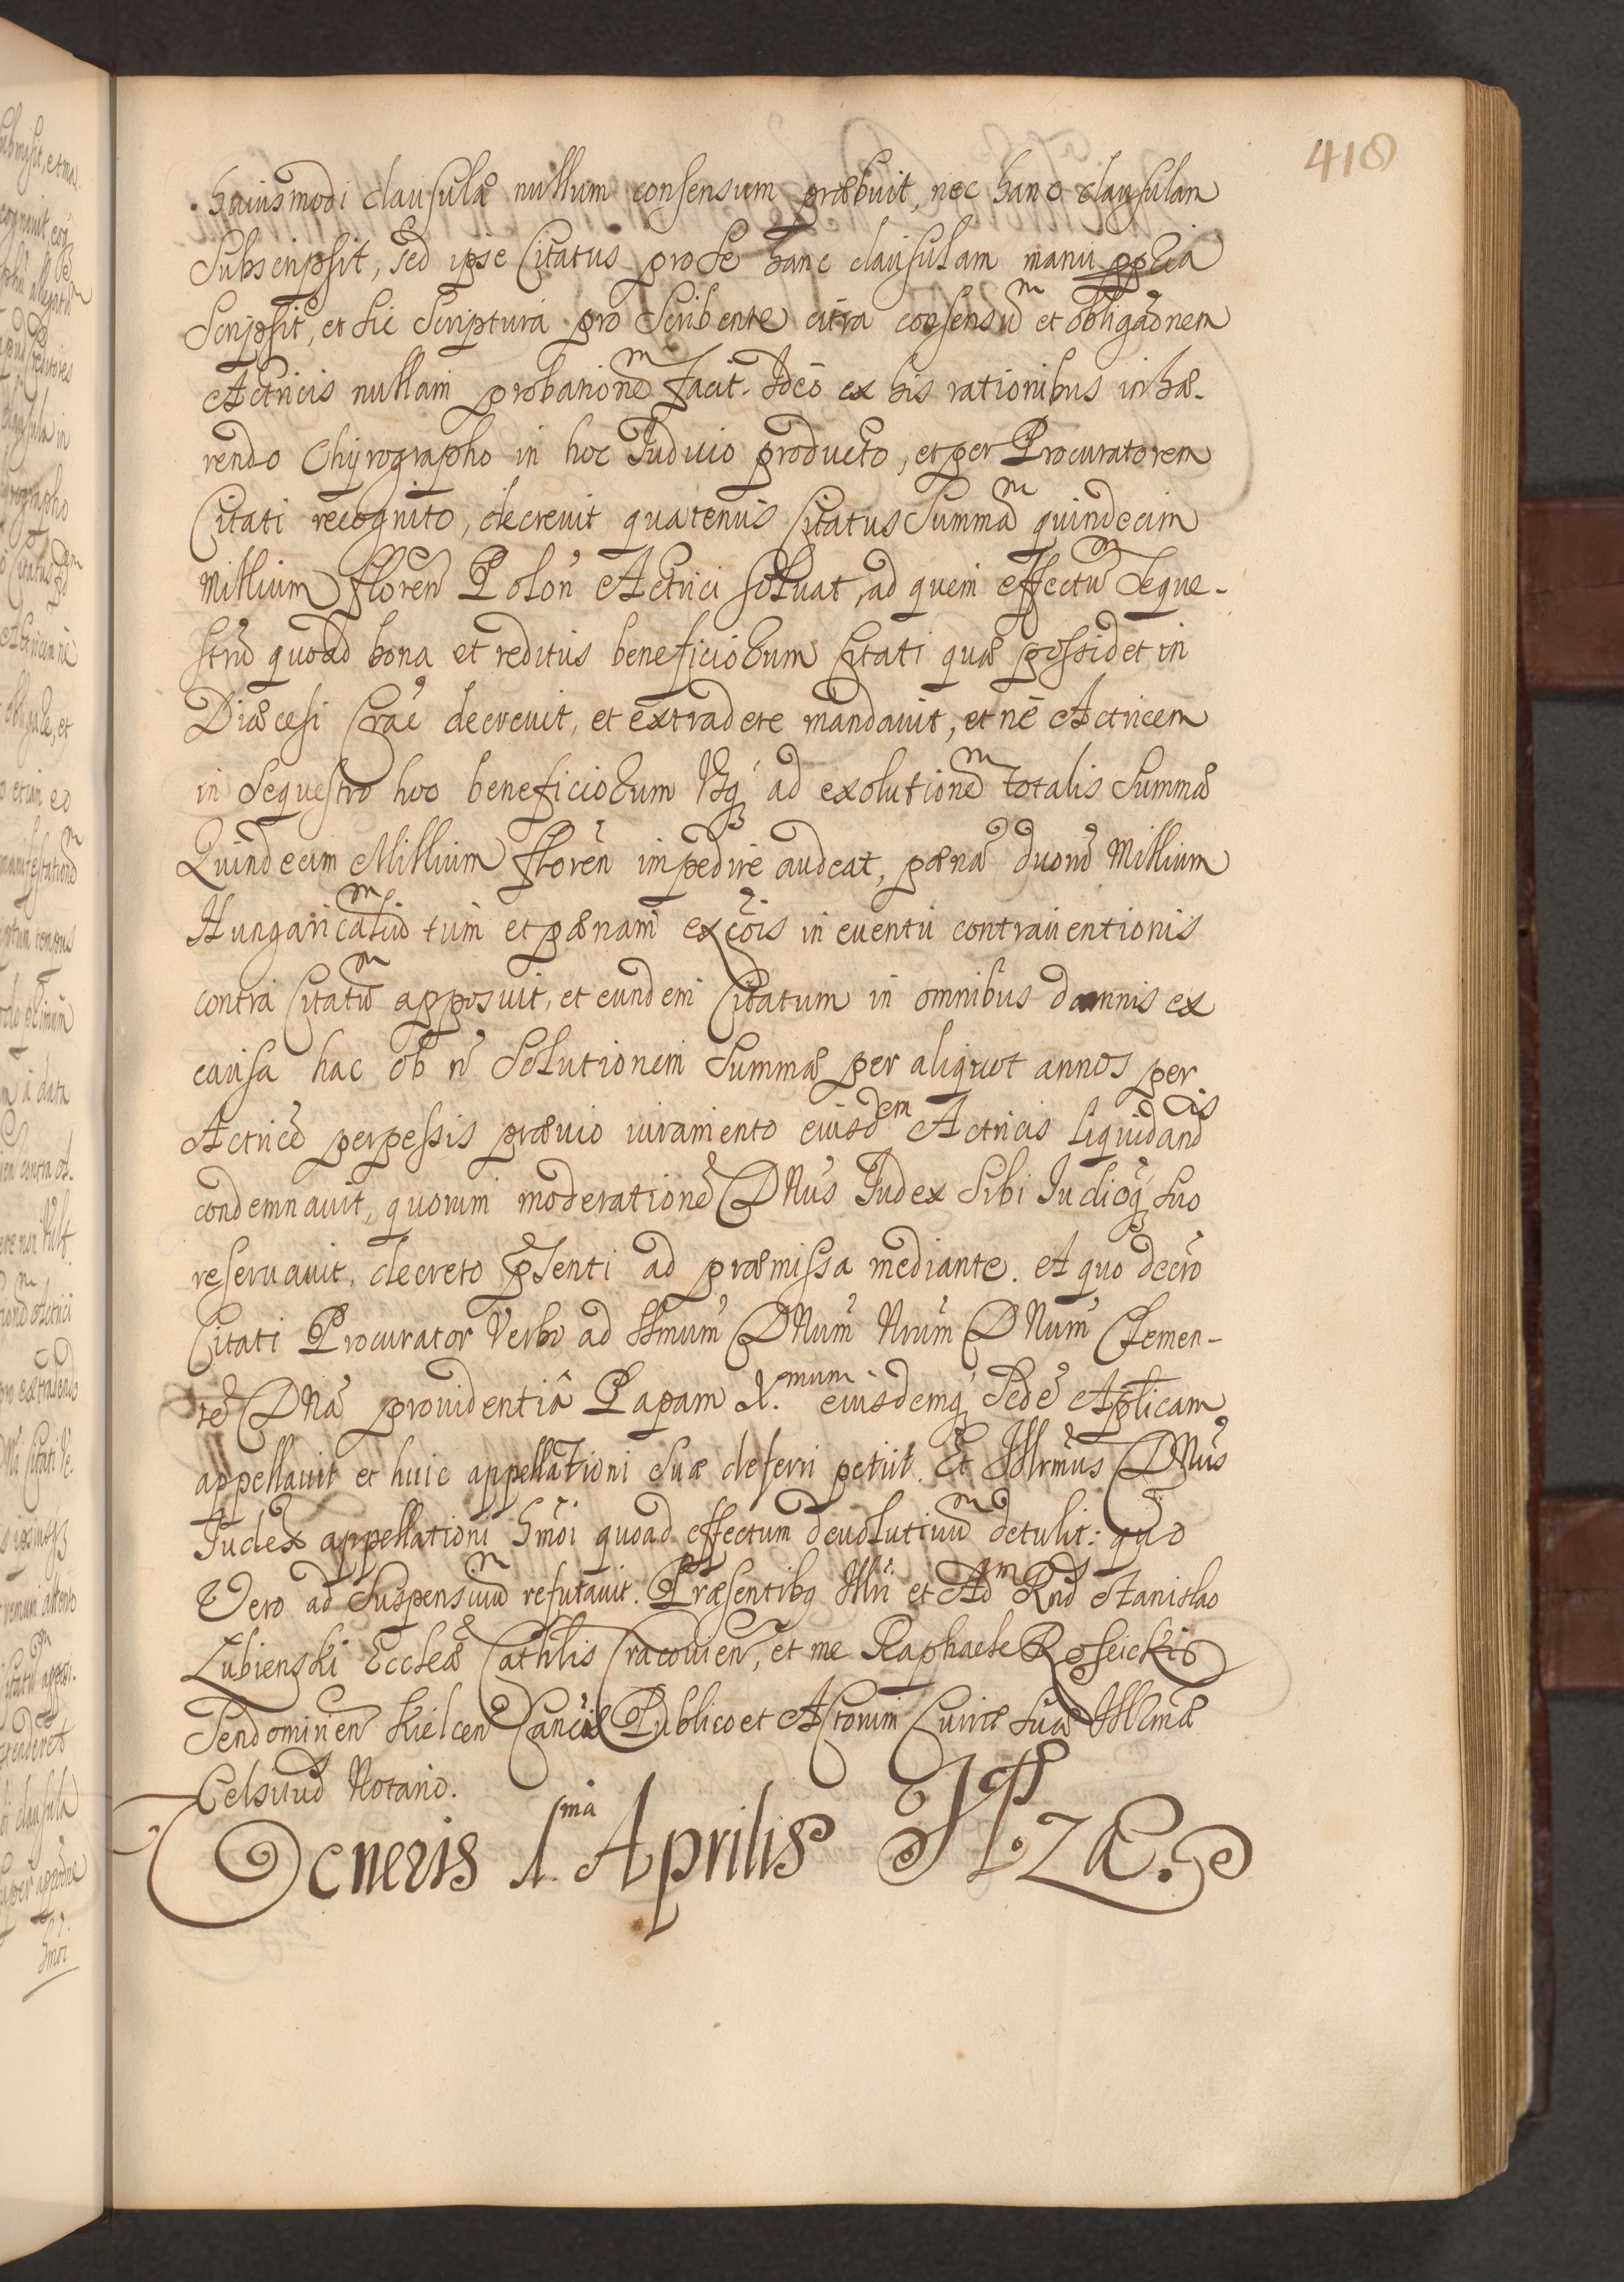 418
huiusmodi clausulæ nullum consensum præbuit, nec hanc clausulam
Subscripsit, sed ipse Citatus pro se hanc clausulam manu ppria
Scripsit, et sic Scriptura pro Scribente citra consensũ et obligãonem
Actricis nullam probationẽ facit. Ideo ex his rationibus inhæ-
rendo Chyrographo in hoc Iudicio producto, et per Procuratorem
Citati recognito, decrevit quatenus Citatus Summã quindecim
Millium floreñ Poloñ Actrici solvat, ad quem effectũ Seque-
strũ quoad bona et reditus beneficiorum Citati quæ possidet in
Diæcesi Craĉ decrevit, et extradere mandavit, et ne Actricem
in Sequestro hoc beneficiorum Usq; ad exolutionẽ totalis Summæ
Quindecim Millium floreñ impedire audeat, pænã duorũ Millium
Hungaricaliũ tum et pænam excõis in eventu contraventionis
contra Citatũ apposuit, et eundem Citatum in omnibus damnis ex
causa hac ob ñ Solutionem Summæ per aliquot annos per
Actricẽ perpessis prævio iuramento eiusdem Actricis liquidandis
condemnavit, quorum moderationẽ DNus Iudex Sibi Iudicioq; suo
reservavit, decreto p̃senti ad præmissa mediante. A quo decrõ
Citati Procurator Verbo ad SSmum DNum Nrum DNum Clemen-
tẽ Dnã providentiâ Papam X.mum eiusdemq; Sedẽ Aplicam
appellavit et huic appellationi suæ deferri petiit. Et Illrmus DNus
Iudex appellationi hmõi quoad effectum devolutivũ detulit: quo
Vero ad Suspensivũ refutavit. Præsentibq Illri et Adm Rnd Stanislao
Lubienski Eccleæ Cathlis Cracovieñ, et me Raphaele Roseicki
Sendomirieñ Kielceñ Canco Publico et Actorum Curiæ suæ Illmæ
Celsitud Notario.
Veneris 1.ma Aprilis